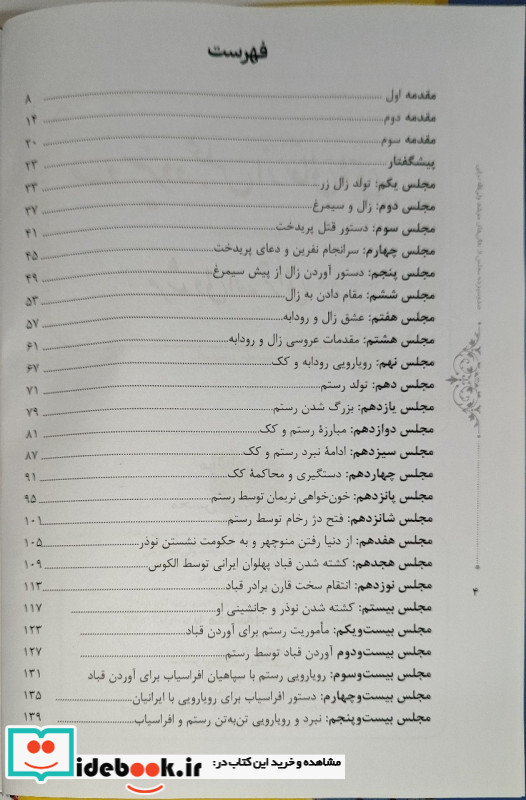 فهرست
مقدمه اول ........ ۸
مقدمه دوم ........ ۱۴
مقدمه سوم ........ ۲۰
پیشگفتار ........ ۲۳
مجلس یکم: تولد زال زر ........ ۳۳
مجلس دوم: زال و سیمرغ ........ ۳۷
مجلس سوم: دستور قتل پریدخت ........ ۴۱
مجلس چهارم: سرانجام نفرین و دعای پریدخت ........ ۴۵
مجلس پنجم: دستور آوردن زال از پیش سیمرغ ........ ۴۹
مجلس ششم: مقام دادن به زال ........ ۵۳
مجلس هفتم: عشق زال و رودابه ........ ۵۷
مجلس هشتم: مقدمات عروسی زال و رودابه ........ ۶۱
مجلس نهم: رویارویی رودابه و کک ........ ۶۷
مجلس دهم: تولد رستم ........ ۷۱
مجلس یازدهم: بزرگ شدن رستم ........ ۷۹
مجلس دوازدهم: مبارزهٔ رستم و کک ........ ۸۱
مجلس سیزدهم: ادامهٔ نبرد رستم و کک ........ ۸۷
مجلس چهاردهم: دستگیری و محاکمهٔ کک ........ ۹۱
مجلس پانزدهم: خون‌خواهی نریمان توسط رستم ........ ۹۵
مجلس شانزدهم: فتح دژ رخام توسط رستم ........ ۱۰۱
مجلس هفدهم: از دنیا رفتن منوچهر و به حکومت نشستن نوذر ........ ۱۰۵
مجلس هجدهم: کشته شدن قباد پهلوان ایرانی توسط الکوس ........ ۱۰۹
مجلس نوزدهم: انتقام سخت قارن برادر قباد ........ ۱۱۳
مجلس بیستم: کشته شدن نوذر و جانشینی او ........ ۱۱۷
مجلس بیست‌ویکم: مأموریت رستم برای آوردن قباد ........ ۱۲۳
مجلس بیست‌ودوم آوردن قباد توسط رستم ........ ۱۲۷
مجلس بیست‌وسوم: رویارویی رستم با سپاهیان افراسیاب برای آوردن قباد ۱۳۱
مجلس بیست‌وچهارم: دستور افراسیاب برای رویارویی با ایرانیان ........ ۱۳۵
مجلس بیست‌وپنجم: نبرد و رویارویی تن‌به‌تن رستم و افراسیاب ........ ۱۳۹
۴
مشاهده و خرید این کتاب در:
idebook.ir